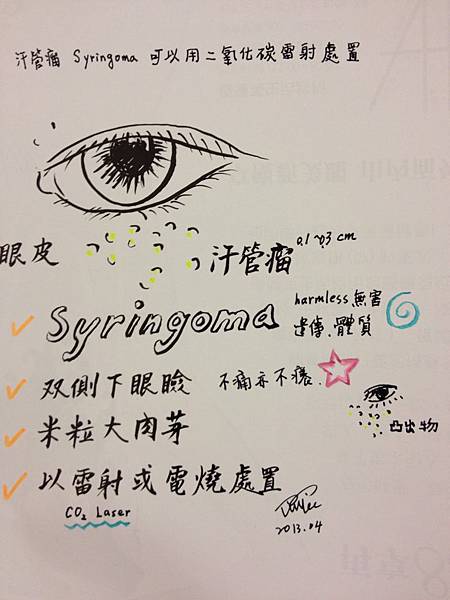 汗管瘤 Syringoma 可以用二氧化碳雷射處置
眼皮 汗管瘤 0.1~0.3 cm
Syringoma harmless 無害
遺傳.體質
双側下眼瞼 不痛亦不癢.
米粒大肉芽 凸出物
以雷射或電燒處置
CO₂ Laser
2013.04